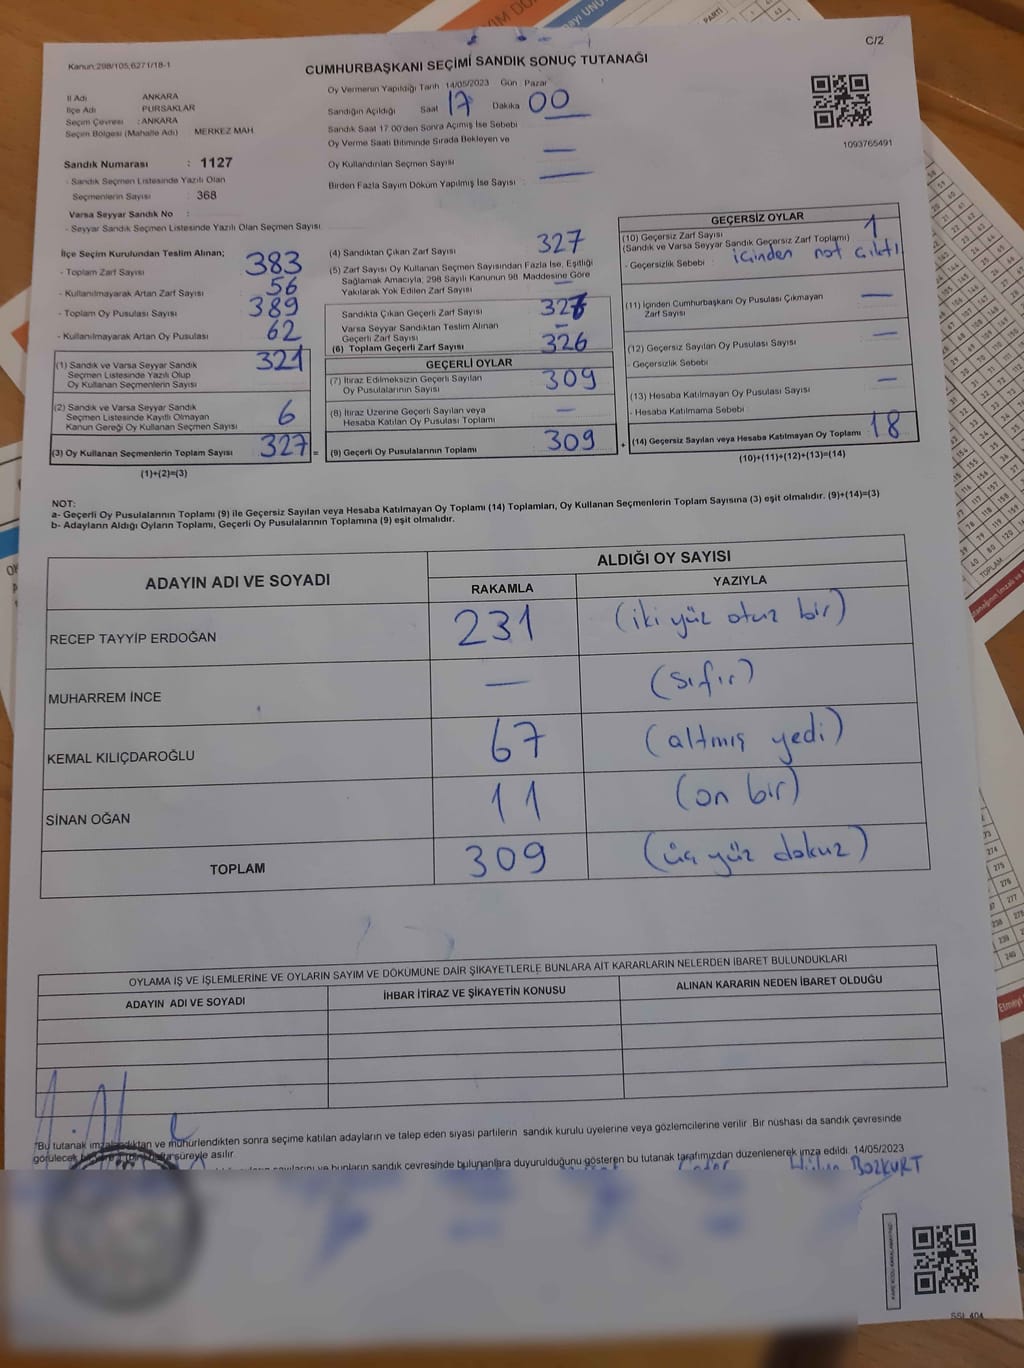 C/2
Kanun:298/105,6271/18-1
CUMHURBAŞKANI SEÇİMİ SANDIK SONUÇ TUTANAĞI
İl Adı ANKARA
İlçe Adı PURSAKLAR
Seçim Çevresi : ANKARA
Seçim Bölgesi (Mahalle Adı) MERKEZ MAH.
Sandık Numarası : 1127
- Sandık Seçmen Listesinde Yazılı Olan
Seçmenlerin Sayısı 368
Varsa Seyyar Sandık No :
- Seyyar Sandık Seçmen Listesinde Yazılı Olan Seçmen Sayısı
Oy Vermenin Yapıldığı Tarih 14/05/2023 Gün Pazar
Sandığın Açıldığı Saat 17 Dakika 00
Sandık Saat 17:00'den Sonra Açılmış İse Sebebi
Oy Verme Saati Bitiminde Sırada Bekleyen ve
Oy Kullandırılan Seçmen Sayısı —
Birden Fazla Sayım Döküm Yapılmış İse Sayısı —
1093765491
İlçe Seçim Kurulundan Teslim Alınan;
- Toplam Zarf Sayısı 383
- Kullanılmayarak Artan Zarf Sayısı 56
- Toplam Oy Pusulası Sayısı 389
- Kullanılmayarak Artan Oy Pusulası 62
(1) Sandık ve Varsa Seyyar Sandık 321
Seçmen Listesinde Yazılı Olup
Oy Kullanan Seçmenlerin Sayısı
(2) Sandık ve Varsa Seyyar Sandık
Seçmen Listesinde Kayıtlı Olmayan 6
Kanun Gereği Oy Kullanan Seçmen Sayısı
(3) Oy Kullanan Seçmenlerin Toplam Sayısı 327 =
(1)+(2)=(3)
(4) Sandıktan Çıkan Zarf Sayısı 327
(5) Zarf Sayısı Oy Kullanan Seçmen Sayısından Fazla İse, Eşitliği
Sağlamak Amacıyla, 298 Sayılı Kanunun 98. Maddesine Göre
Yakılarak Yok Edilen Zarf Sayısı —
Sandıkta Çıkan Geçerli Zarf Sayısı
Varsa Seyyar Sandıktan Teslim Alınan
Geçerli Zarf Sayısı —
(6) Toplam Geçerli Zarf Sayısı 326
GEÇERLİ OYLAR
(7) İtiraz Edilmeksizin Geçerli Sayılan
Oy Pusulalarının Sayısı 309
(8) İtiraz Üzerine Geçerli Sayılan veya
Hesaba Katılan Oy Pusulası Toplamı —
(9) Geçerli Oy Pusulalarının Toplamı 309 +
GEÇERSİZ OYLAR
(10) Geçersiz Zarf Sayısı 1
(Sandık ve Varsa Seyyar Sandık Geçersiz Zarf Toplamı)
- Geçersizlik Sebebi : içinden not çıktı
(11) İçinden Cumhurbaşkanı Oy Pusulası Çıkmayan
Zarf Sayısı —
(12) Geçersiz Sayılan Oy Pusulası Sayısı —
- Geçersizlik Sebebi
(13) Hesaba Katılmayan Oy Pusulası Sayısı —
- Hesaba Katılmama Sebebi
(14) Geçersiz Sayılan veya Hesaba Katılmayan Oy Toplamı 18
(10)+(11)+(12)+(13)=(14)
NOT:
a- Geçerli Oy Pusulalarının Toplamı (9) ile Geçersiz Sayılan veya Hesaba Katılmayan Oy Toplamı (14) Toplamları, Oy Kullanan Seçmenlerin Toplam Sayısına (3) eşit olmalıdır. (9)+(14)=(3)
b- Adayların Aldığı Oyların Toplamı, Geçerli Oy Pusulalarının Toplamına (9) eşit olmalıdır.
ADAYIN ADI VE SOYADI ALDIĞI OY SAYISI
RAKAMLA YAZIYLA
RECEP TAYYİP ERDOĞAN 231 (iki yüz otuz bir)
MUHARREM İNCE — (sıfır)
KEMAL KILIÇDAROĞLU 67 (altmış yedi)
SİNAN OĞAN 11 (on bir)
TOPLAM 309 (üç yüz dokuz)
OYLAMA İŞ VE İŞLEMLERİNE VE OYLARIN SAYIM VE DÖKÜMÜNE DAİR ŞİKAYETLERLE BUNLARA AİT KARARLARIN NELERDEN İBARET BULUNDUKLARI
ADAYIN ADI VE SOYADI İHBAR İTİRAZ VE ŞİKAYETİN KONUSU ALINAN KARARIN NEDEN İBARET OLDUĞU
"Bu tutanak imzalandıktan ve mühürlendikten sonra seçime katılan adayların ve talep eden siyasi partilerin sandık kurulu üyelerine veya gözlemcilerine verilir. Bir nüshası da sandık çevresinde
görülecek bir süreyle asılır.
bunların sandık çevresinde bulunanlara duyurulduğunu gösteren bu tutanak tarafımızdan düzenlenerek imza edildi. 14/05/2023
BOZKURT